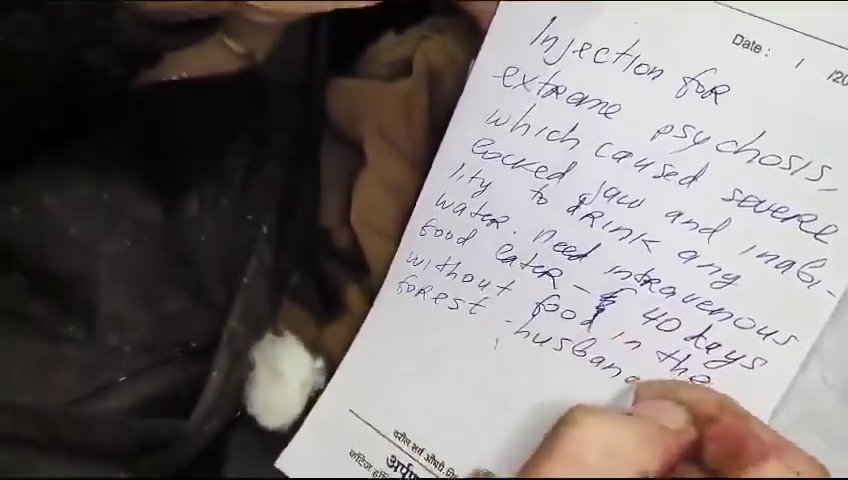 Date: / /20
Injection for
extreme psychosis,
which caused severe
locked jaw and inabi-
lity to drink any
water. Need intravenous
food later - 40 days
without food in the
forest - husband
वरील सर्व औषधे